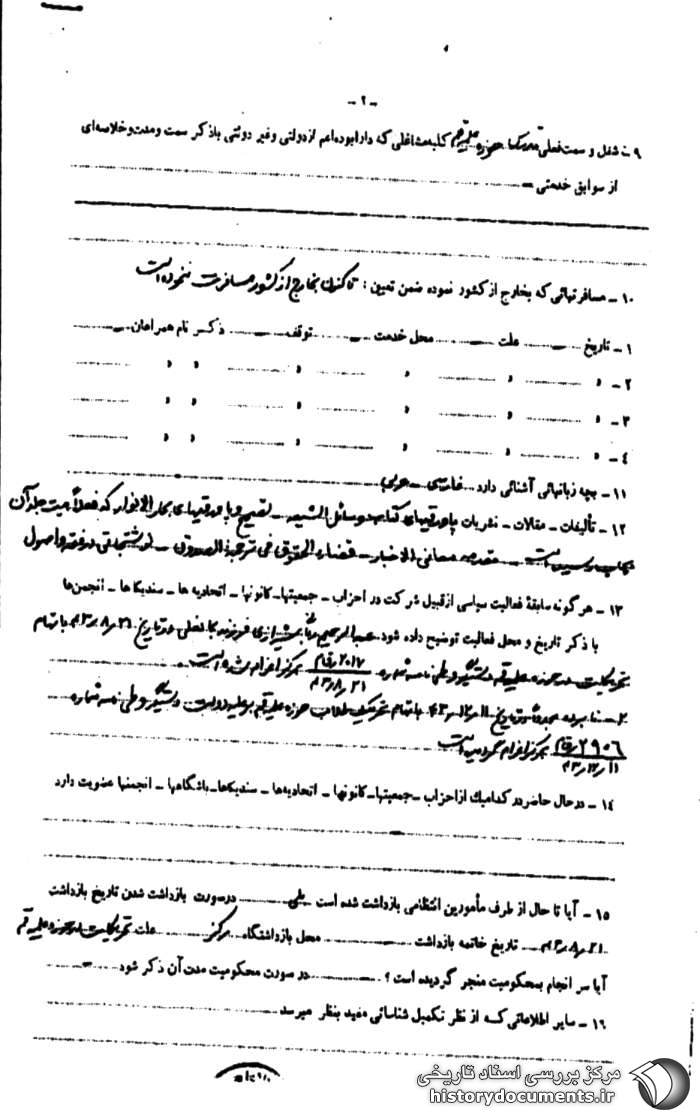 -۲-
۹ - شغل و سمت فعلی مدرس حوزه علمیه قم کلیه مشاغلی که دارا بوده اعم از دولتی وغیر دولتی باذکر سمت ومدت وخلاصه‌ای
از سوابق خدمتی -
۱۰ - مسافرتهائی که بخارج از کشور نموده ضمن تعیین : تاکنون بخارج از کشور مسافرت ننموده است
۱ - تاریخ - علت - محل خدمت - توقف - ذکر نام همراهان -
۲ - " " " " " "
۳ - " " " " " "
۴ - " " " " " "
۱۱ - بچه زبانهائی آشنائی دارد فارسی - عربی
۱۲ - تألیفات - مقالات - نشریات پاورقیهای کتاب وسائل الشیعه - تصحیح و پاورقیهای بحار الانوار که فعلاً بیست جلد آن
بچاپ رسیده است - مقدمه معانی الاخبار - قضاء الحقوق فی ترجمة الصدوق - نوشتجاتی در فقه و اصول
۱۳ - هرگونه سابقهٔ فعالیت سیاسی ازقبیل شرکت در احزاب - جمعیتها - کانونها - اتحادیه ها - سندیکاها - انجمن‌ها
با ذکر تاریخ و محل فعالیت توضیح داده شود. عبدالرحیم ربانی شیرازی فرزند در تاریخ ۴۲٫۸٫۲۱ باتهام
تحریکات در حوزه علمیه قم دستگیر و طی نامه شماره ۲۰۱۷ / ۴۲٫۸٫۲۱ بمرکز اعزام شده است
۲ - نامبرده مجدداً در تاریخ باتهام تحریک طلاب حوزه علمیه قم بر علیه دولت دستگیر و طی نامه شماره
۲۹۰۶ / ۴۲٫۱۲٫۱۱ بمرکز اعزام گردیده است
۱۴ - درحال حاضر در کدامیک ازاحزاب - جمعیتها - کانونها - اتحادیه‌ها - سندیکاها - باشگاهها - انجمنها عضویت دارد
۱۵ - آیا تا حال از طرف مأمورین انتظامی بازداشت شده است بلی درصورت بازداشت شدن تاریخ بازداشت
۴۲٫۸٫۲۱ تاریخ خاتمه بازداشت - محل بازداشتگاه مرکز علت تحریکات در حوزه علمیه قم
آیا سر انجام بمحکومیت منجر گردیده است ؟ - در صورت محکومیت مدت آن ذکر شود -
۱۶ - سایر اطلاعاتی کـه از نظر تکمیل شناسائی مفید بنظر میرسد
مرکز بررسی اسناد تاریخی
historydocuments.ir